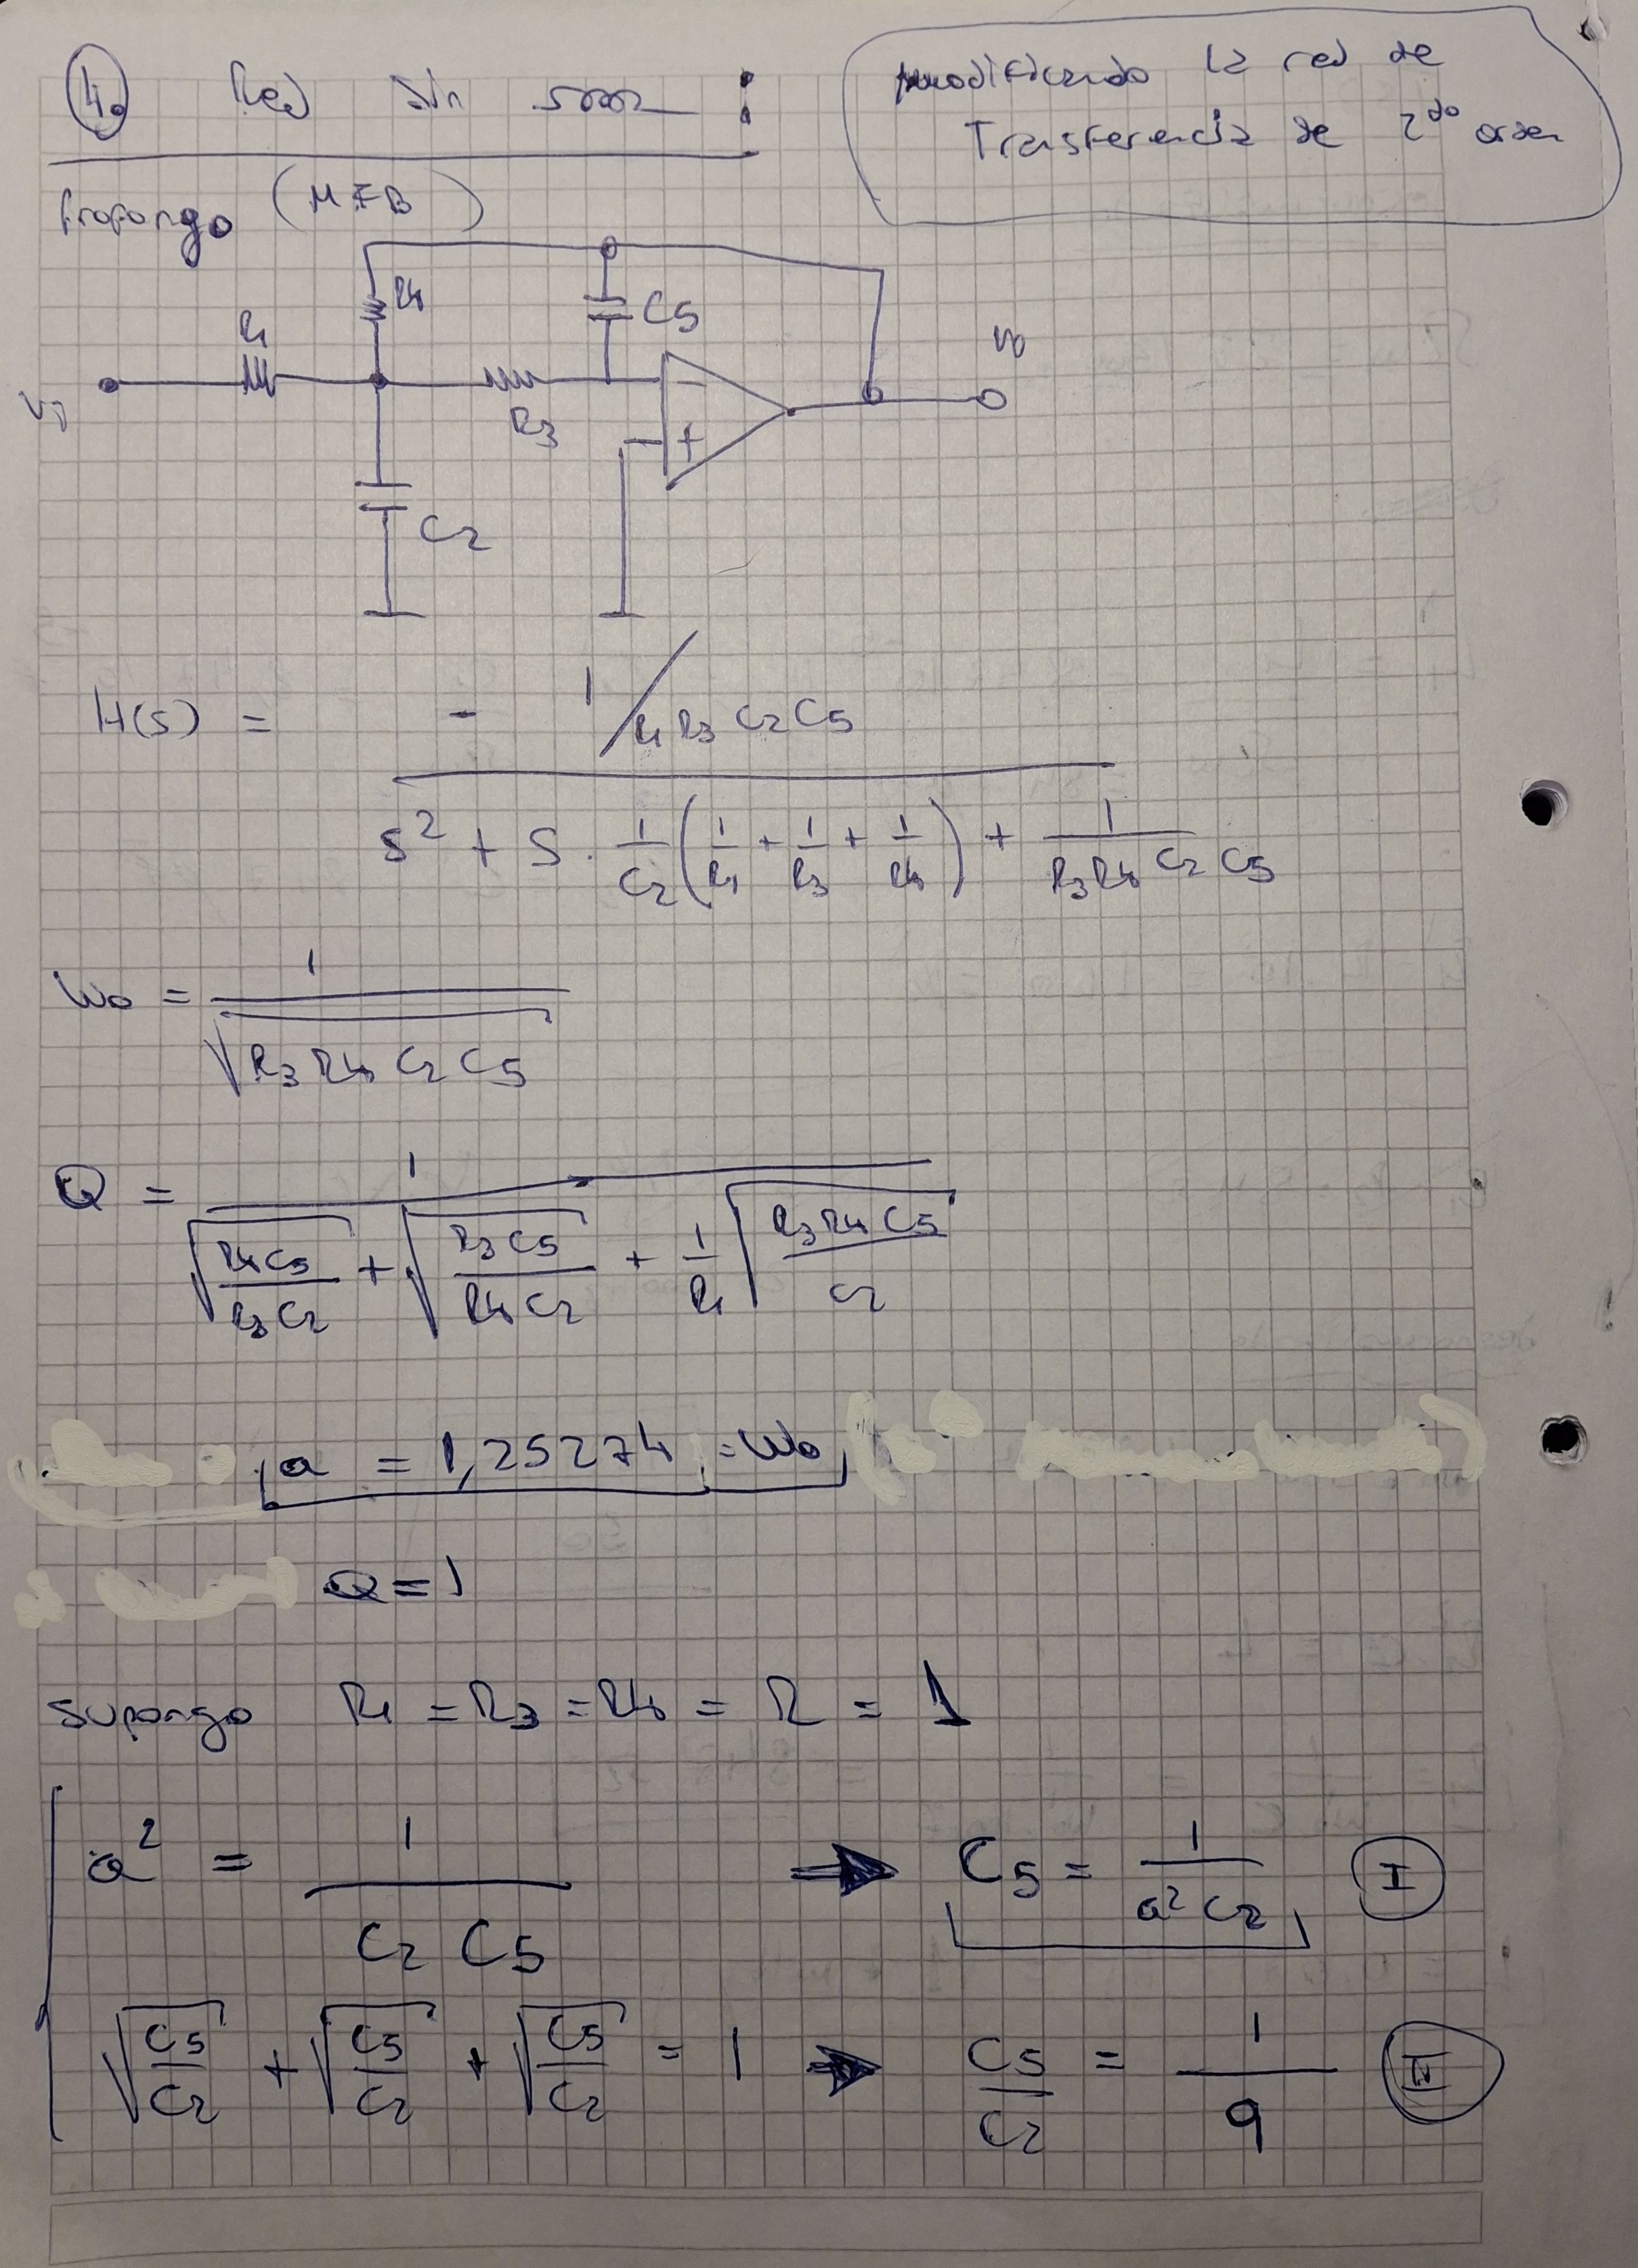 4. Red sin
modificando la red de
Transferencia de 2do orden
Propongo (MFB)
R4
C5
R1
Vo
R3
- +
C2
H(s) = - 1 / R1 R3 C2 C5
s² + s · 1/C2 (1/R1 + 1/R3 + 1/R4) + 1/(R3 R4 C2 C5)
Wo = 1 / √(R3 R4 C2 C5)
Q = 1 / (√(R4 C5 / R3 C2) + √(R3 C5 / R4 C2) + 1/R1 √(R3 R4 C5 / C2))
a = 1,25274 = Wo
Q = 1
supongo R1 = R3 = R4 = R = 1
a² = 1 / (C2 C5) → C5 = 1 / (a² C2) I
√(C5/C2) + √(C5/C2) + √(C5/C2) = 1 → C5/C2 = 1/9 II